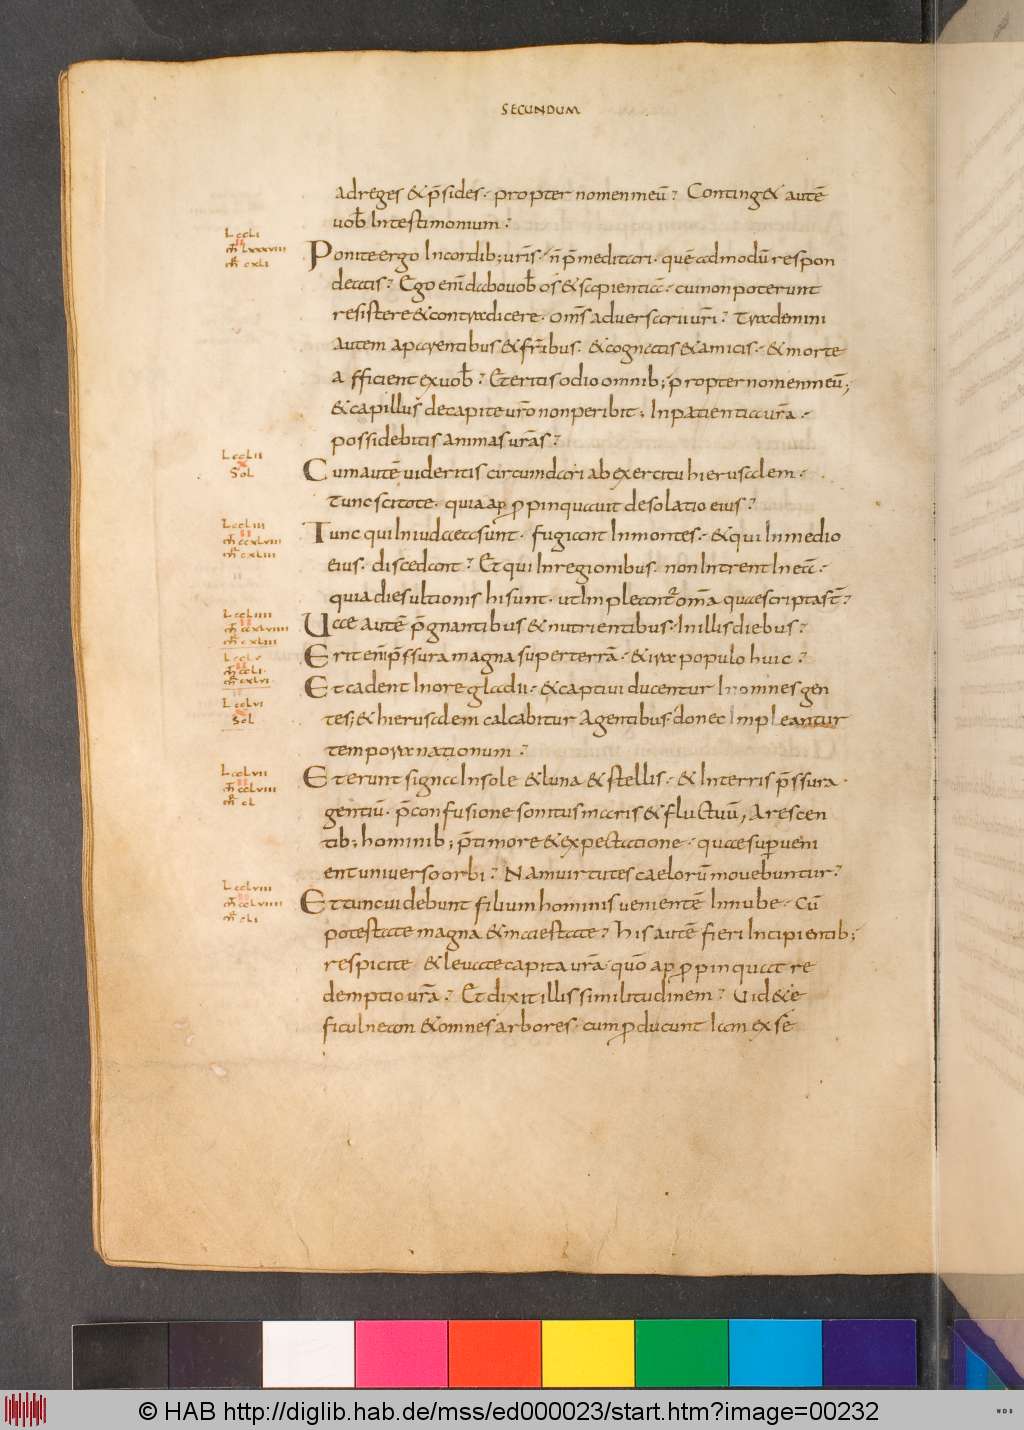 SECUNDUM
ad reges & p̄sides· propter nomen meū? Conting& autē
uob̄ In testimonium?
L ccLi
m̄ Lxxxviii
m̄r cxLi
Ponite ergo In cordib; ur̄is· n̄ p̄meditari· quēadmodū respon
deatis? Ego enī dabo uob̄ os & sapientiā· cui non poterunt
resistere & contradicere· om̄s aduersarii ur̄i? Trademini
autem a parentibus & fr̄ibus· & cognatis & amicis· & morte
afficient ex uob̄? Et eritis odio omnib; propter nomen meū;
& capillus de capite ur̄o non peribit; In patientia ur̄a·
possidebitis animas ur̄as?
L ccLii
SoL
Cum autē uideritis circumdari ab exercitu hierusalem·
tunc scitote· quia appropinquauit desolatio eius?
L ccLiii
m̄ ccxLviii
m̄r cxLiii
Tunc qui In iudaea sunt· fugiant In montes· & qui In medio
eius· discedant? Et qui In regionibus· non Intrent In eā·
quia dies ultionis hi sunt· ut Impleant̄ om̄a quae scripta st̄?
L ccLiiii
m̄ ccxLviiii
m̄r cxLiiii
Uae autē p̄gnantibus & nutrientibus· In illis diebus?
L ccLv
m̄ ccLi
m̄r cxLvi
Erit enī p̄ssura magna super terrā· & ira populo huic?
L ccLvi
SoL
Et cadent In ore gladii· & captiui ducentur In omnes gen
tes; & hierusalem calcabitur a gentibus· donec Impleantur
tempora nationum?
L ccLvii
m̄ ccLviii
m̄r cL
Et erunt signa In sole & luna & stellis· & In terris p̄ssura·
gentiū· p̄ confusione sonitus maris & fluctuū, Arescen
tib; hominib; p̄ timore & expectatione· quae superueni
ent uniuerso orbi? Nam uirtutes caelorū mouebuntur?
L ccLviii
m̄ ccLviiii
m̄r cLi
Et tunc uidebunt filium hominis uenientē In nube· Cū
potestate magna & maiestate? His autē fieri Incipientib;
respicite & leuate capita ur̄a· quō appropinquat re
demptio ur̄a? Et dixit illis similitudinem? Uid&e
ficulneam & omnes arbores· cum producunt Iam ex se
© HAB http://diglib.hab.de/mss/ed000023/start.htm?image=00232